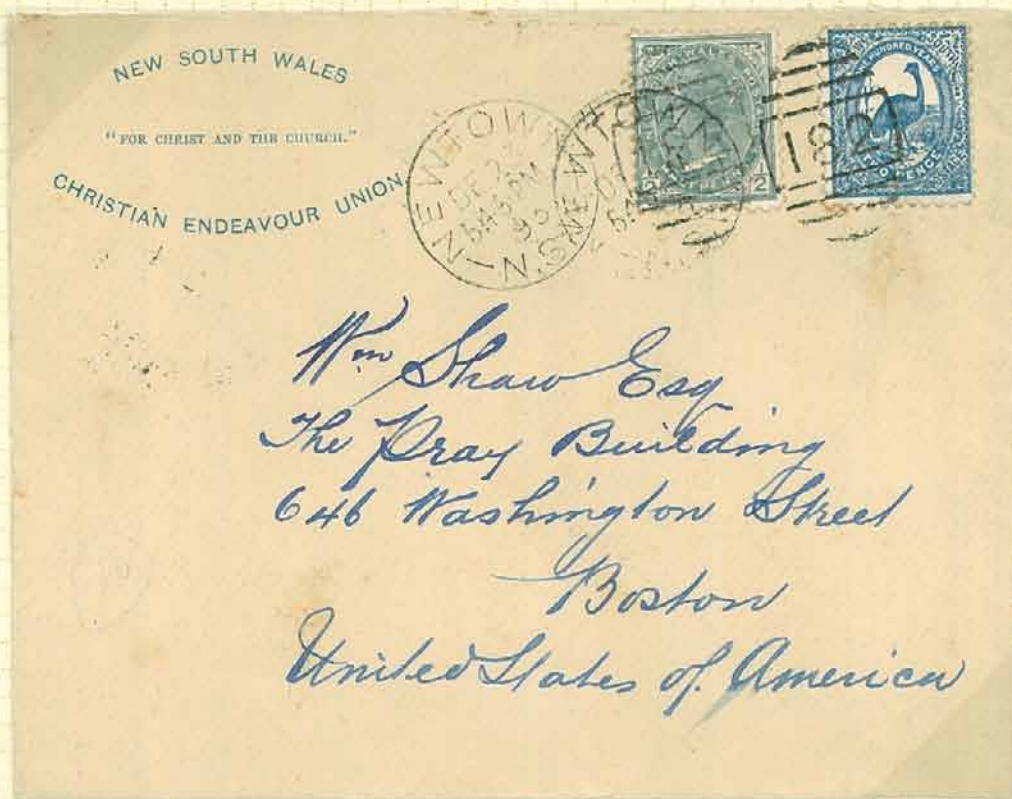 NEW SOUTH WALES
"FOR CHRIST AND THE CHURCH."
CHRISTIAN ENDEAVOUR UNION
NEWTOWN
DE 2
5 PM
N.S.W
NEWTOWN
DE
182
ONE HUNDRED YEARS
TWO PENCE
2
Wm Shaw Esq
The Pray Building
646 Washington Street
Boston
United States of America